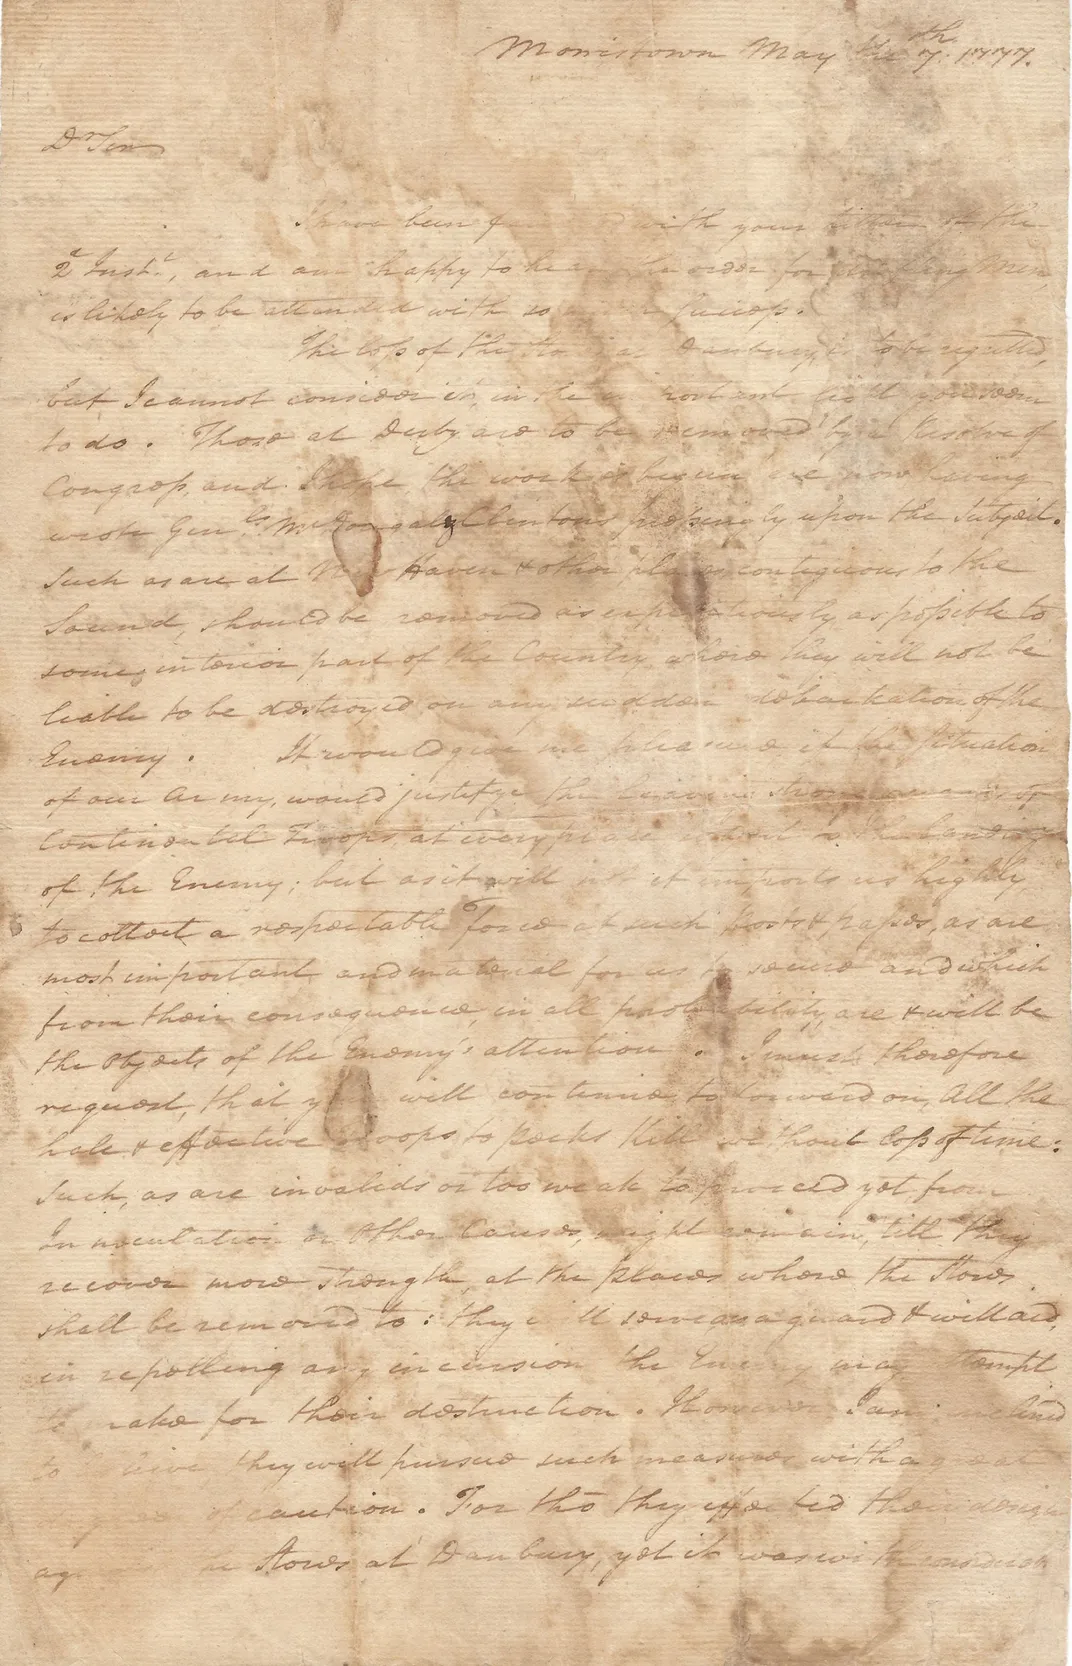 Morristown May the 7th. 1777.
Dr Sir
I have been f with your letter of the
2d Inst., and am happy to hear the order for Men,
is likely to be attended with so Success.
The loss of the at Danbury, is to be regretted,
but I cannot consider it, in the light you seem
to do. Those at Derby are to be removed by a Resolve of
Congress, and I hope, the work is begun now having
wrote Genls McDougal & Clinton pressingly upon the Subject.
Such as are at New Haven & other places contiguous to the
Sound, should be removed as expeditiously as possible to
some interior part of the Country where they will not be
liable to be destroyed on any sudden debarkation of the
Enemy. It would give me pleasure if the Situation
of our Army, would justifye the leaving strong of
Continental Troops, at every place the landing
of the Enemy; but as it will not it imports us highly,
to collect a respectable Force at such posts & passes, as are
most important and material for us to secure and which
from their consequence, in all probability, are & will be
the Objects of the Enemy's attention. I must therefore
request, that you will continue to forward on, All the
hale & effective Troops to Peeks Kill without loss of time:
Such, as are invalids or too weak to proceed yet from
Innoculation or Other Causes, might remain, till they
recover more strength, at the places where the Stores
shall be removed to: they will serve as a guard & will aid,
in repelling any incursion the Enemy may attempt
to make for their destruction. However I am inclined
to believe they will pursue such measures with a great
degree of caution. For tho they effected their design
against the Stores at Danbury, yet it was with